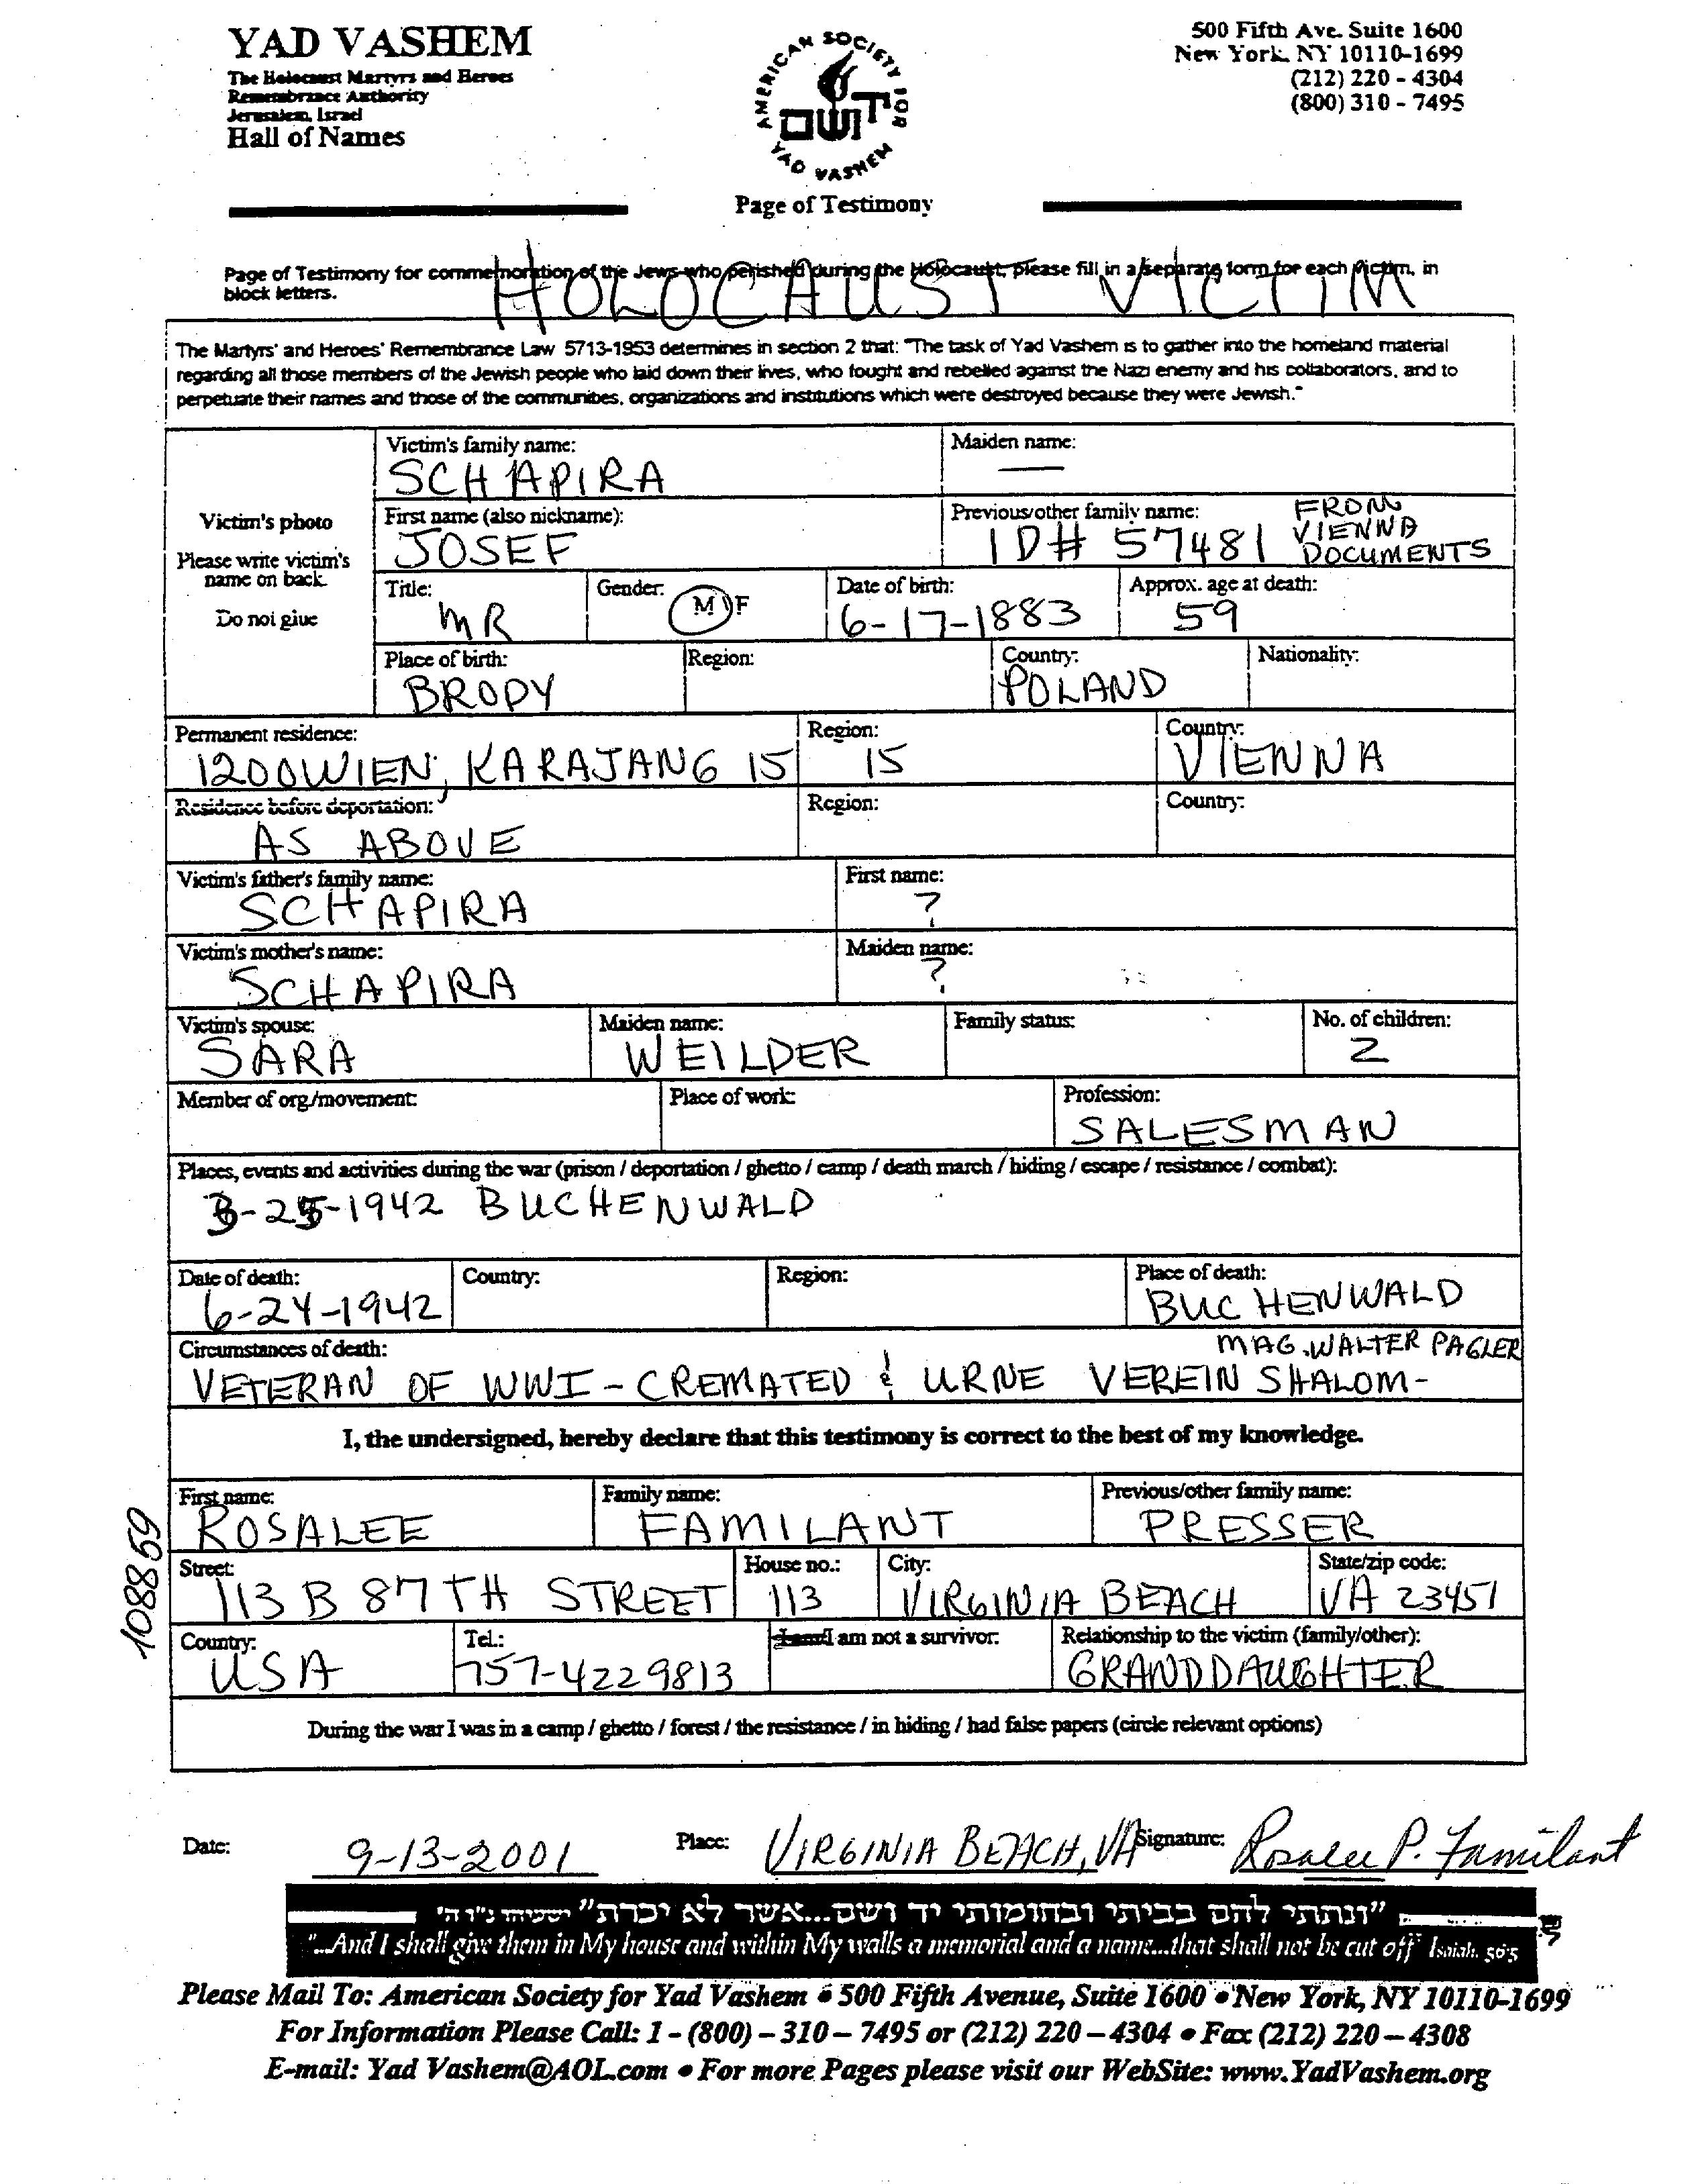 YAD VASHEM
The Holocaust Martyrs and Heroes
Remembrance Authority
Jerusalem, Israel
Hall of Names
AMERICAN SOCIETY FOR
יד ושם
YAD VASHEM
Page of Testimony
500 Fifth Ave. Suite 1600
New York. NY 10110-1699
(212) 220 - 4304
(800) 310 - 7495
Page of Testimony for commemoration of the Jews who perished during the Holocaust, please fill in a separate form for each victim, in
block letters.
HOLOCAUST VICTIM
The Martyrs' and Heroes' Remembrance Law 5713-1953 determines in section 2 that: "The task of Yad Vashem is to gather into the homeland material
regarding all those members of the Jewish people who laid down their lives, who fought and rebelled against the Nazi enemy and his collaborators, and to
perpetuate their names and those of the communities, organizations and institutions which were destroyed because they were Jewish."
Victim's photo
Please write victim's
name on back.
Do not glue
Victim's family name: Maiden name:
SCHAPIRA —
First name (also nickname): Previous/other family name:
JOSEF ID# 57481 FROM
VIENNA
DOCUMENTS
Title: Gender: Date of birth: Approx. age at death:
MR M/F 6-17-1883 59
Place of birth: Region: Country: Nationality:
BRODY POLAND
Permanent residence: Region: Country:
1200 WIEN, KARAJANG 15 15 VIENNA
Residence before deportation: Region: Country:
AS ABOVE
Victim's father's family name: First name:
SCHAPIRA ?
Victim's mother's name: Maiden name:
SCHAPIRA ?
Victim's spouse: Maiden name: Family status: No. of children:
SARA WEILDER 2
Member of org/movement: Place of work: Profession:
SALESMAN
Places, events and activities during the war (prison / deportation / ghetto / camp / death march / hiding / escape / resistance / combat):
3-25-1942 BUCHENWALD
Date of death: Country: Region: Place of death:
6-24-1942 BUCHENWALD
Circumstances of death: MAG. WALTER PAGLER
VETERAN OF WWI - CREMATED & URNE VEREIN SHALOM-
I, the undersigned, hereby declare that this testimony is correct to the best of my knowledge.
First name: Family name: Previous/other family name:
ROSALEE FAMILANT PRESSER
Street: House no.: City: State/zip code:
113 B 87TH STREET 113 VIRGINIA BEACH VA 23451
Country: Tel.: I am/I am not a survivor: Relationship to the victim (family/other):
USA 757-4229813 GRANDDAUGHTER
During the war I was in a camp / ghetto / forest / the resistance / in hiding / had false papers (circle relevant options)
108859
Date: 9-13-2001 Place: VIRGINIA BEACH, VA Signature: Rosalee P. Familant
"ונתתי להם בביתי ובחומותי יד ושם...אשר לא יכרת" ישעיהו נ"ו ה'
"...And I shall give them in My house and within My walls a memorial and a name...that shall not be cut off" Isaiah. 56:5
Please Mail To: American Society for Yad Vashem • 500 Fifth Avenue, Suite 1600 • New York, NY 10110-1699
For Information Please Call: 1 - (800) – 310 – 7495 or (212) 220 – 4304 • Fax (212) 220 – 4308
E-mail: Yad Vashem@AOL.com • For more Pages please visit our WebSite: www.YadVashem.org